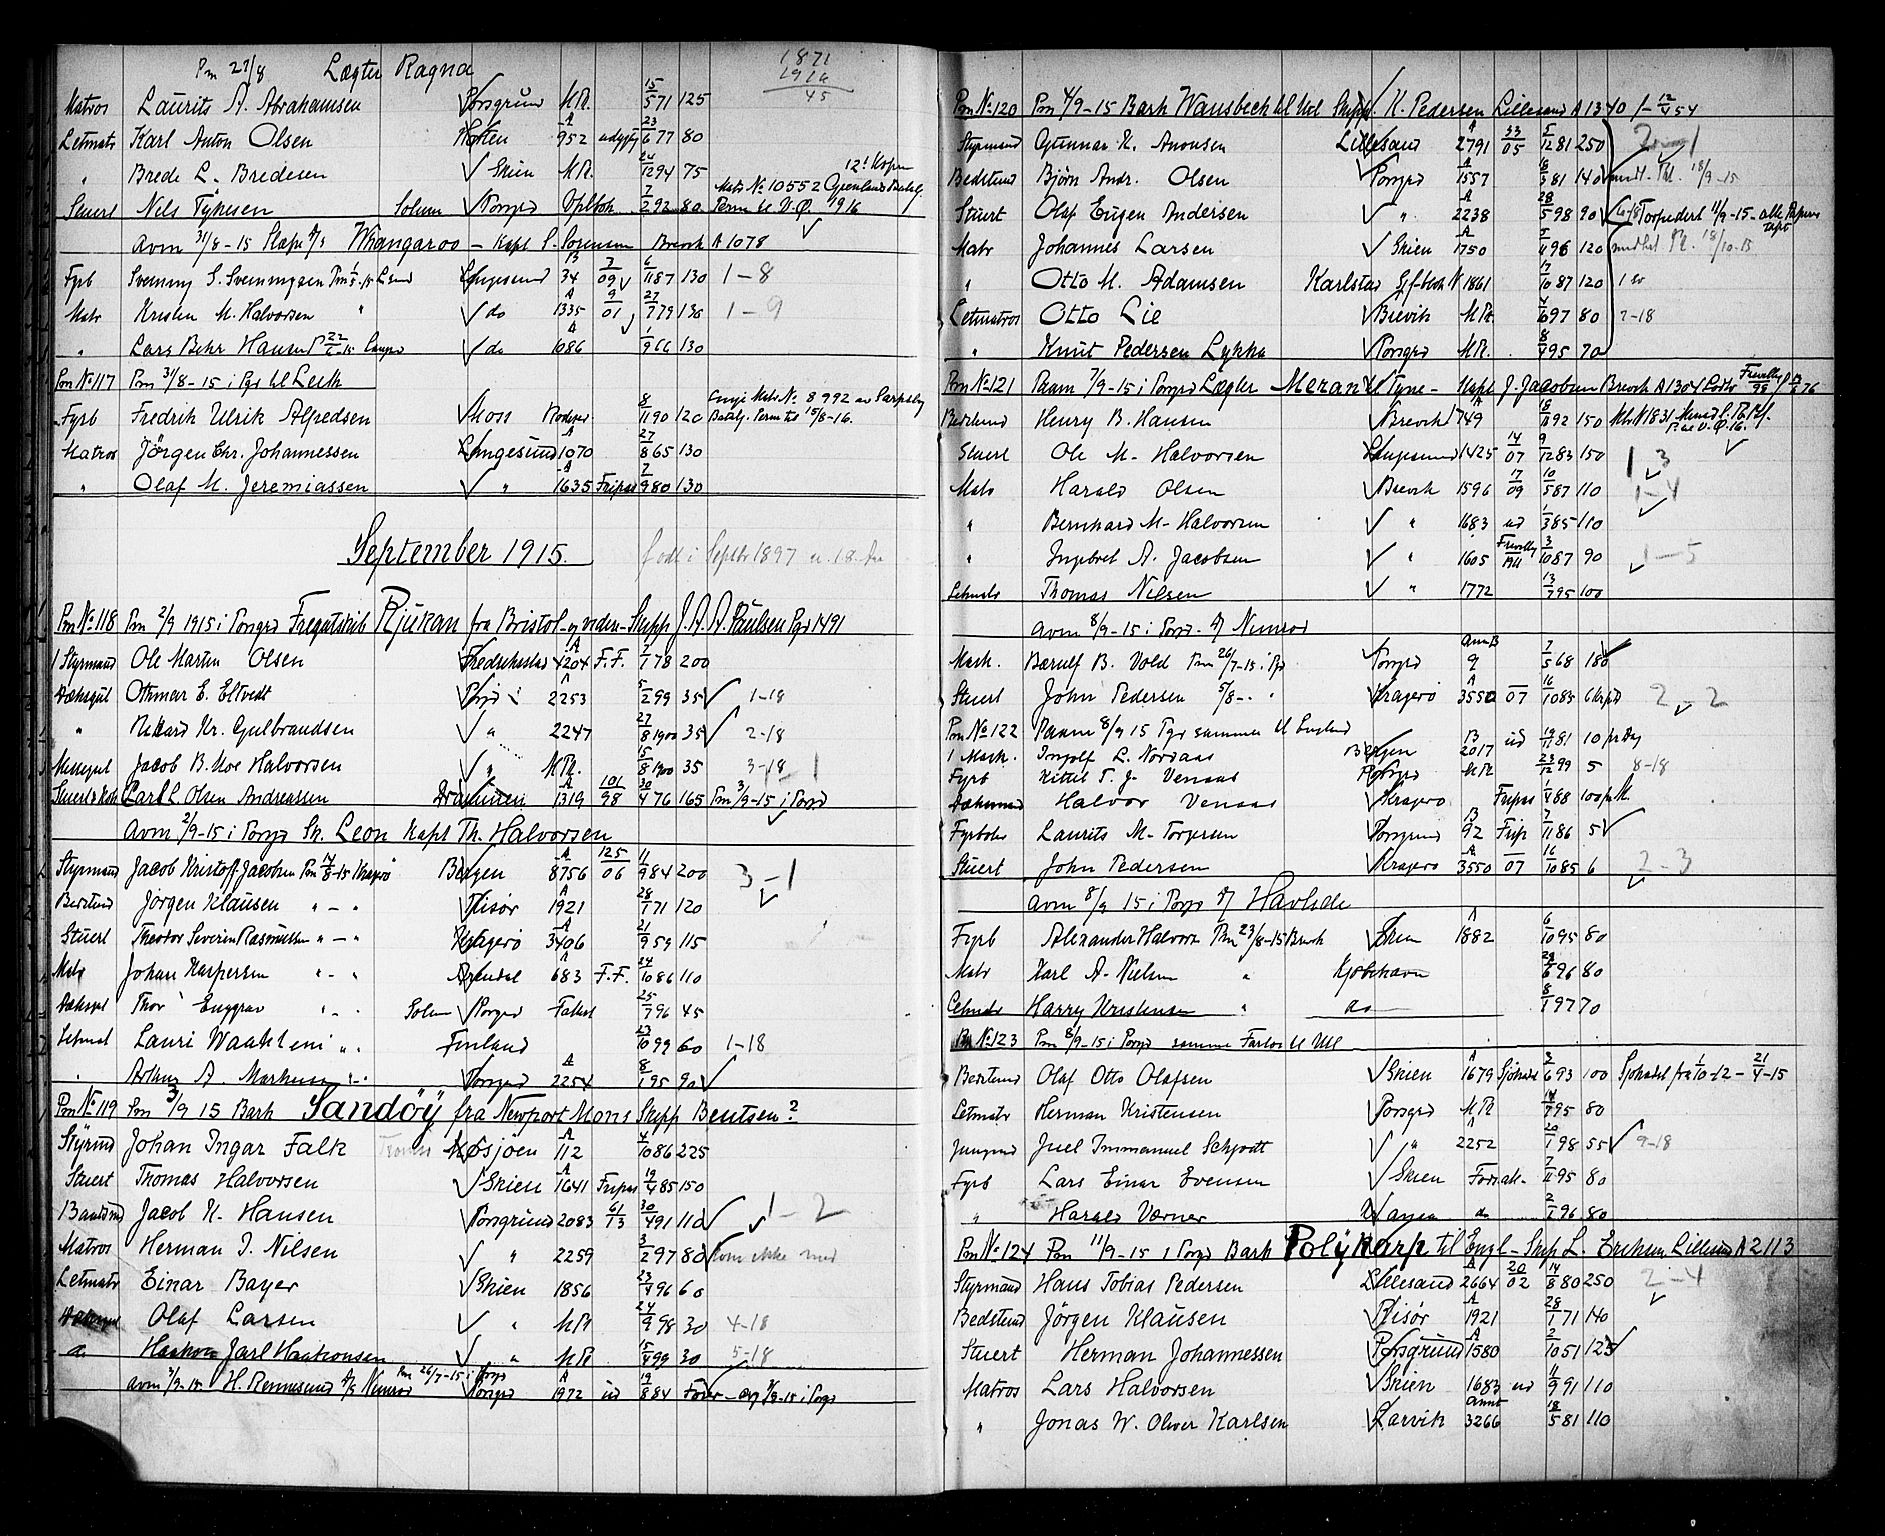 Pm 27/8 Lægter Ragna
1871
1916
45
Matros Laurits A. Abrahamsen Porsgrund M.R. 15/5 71 125
Letmatr Karl Anton Olsen Horten A 952 23/6 77 80
" Brede L. Bredesen Skien M.R. 24/12 94 75
Stuert Nils Tykesen Solum Porsgrd 7/2 92 80 1916
avm 31/8-15 Whangaroo - Kapt S. Sørensen Brevik A 1078
Fyrb Svenning S. Svenningsen Langesund B 34 3/09 6/11 87 130 1-8
Matr Kristen M. Halvorsen " do A 1335 9/01 27/7 79 130 1-9
" Lars Behr Hansen do A 1086 1/9 66 130
Pm No 117 Pm 31/8-15 i Pgr til Leith
Fyrb Fredrik Ulrik Alfredsen Moss 8/11 90 120
Matros Jörgen Chr. Johannessen Langesund A 1070 27/8 65 130
" Olaf M. Jeremiassen " A 1635 Fripas 7/9 80 130
September 1915.
født i Septbr 1897
Pm No 118 Pm 2/9 1915 i Porsgrd Fregatskib Rjukan fra Bristol - Skipp J. A. A. Paulsen Pgr 1491
1 Styrmand Ole Martin Olsen Fredrikstad A 4204 F.F. 7/1 78 200
Dæksgut Othmar E. Eltvedt A 2253 5/2 99 35 1-18
" Rikard Kr. Gulbrandsen " 2247 27/8 1900 35 2-18
Messegut Jacob B. Moe Halvorsen " M.R. 15/8 1900 35 3-18
Carl C. Olsen Andreassen Drammen A 1319 101/98 30/4 76 165 Pm 3/9-15 i Porsgr
avm 2/9-15 i Porsgr Sk. Leon Kapt Th. Halvorsen
Styrmand Jacob Kristoff. Jacobsen Pm 14/8-15 Kragerö Bergen A 8756 125/06 11/9 84 200 3-1
Bedstmd Jörgen Klausen " - " Risør A 1921 28/1 71 120
Stuert Theodor Severin Rasmussen " - " Kragerö A 3406 21/9 59 115
Matr Johan Kaspersen " - " Arendal A 683 F.F. 24/10 86 110
Dæksgut Thor Enggrav " - " Solum Porsgrd 25/7 96 45
Letmat Lauri Waahteni " - " Finland 23/10 99 60 1-18
" Arthur A. Markusen " - " Porsgrd A 2254 8/1 95 90
Pm No 119 Pm 3/9 15 Bark Sandöy fra Newport Mons Skipp Bentsen?
Styrmd Johan Ingar Falk Mosjöen A 112 4/10 86 225
Stuert Thomas Halvorsen Skien A 1641 Fripas 19/4 85 150
Jacob K. Hansen Porsgrund 2083 61/13 30/4 91 110 1-2
Matros Herman I. Nilsen " 2259 3/2 97 80 kom ikke med
Letmatr Einar Bayer Skien 1856 23/4 96 60
Olaf Larsen " M.R. 24/9 98 30 4-18
Haakon Jarl Haakonsen " M.R. 15/4 99 30 5-18
avm 3/9-15 H. Rennesund Nimrod Pm 26/7-15 i Porsgr Porsgrd A 1972 ud 19/8 84
Pm No 120 Pm 4/9-15 Bark Wansbeck til Skipp. K. Pedersen Lillesand A 1340 f- 12/4 54
Styrmand Gunnar K. Anonsen Lillesand A 2791 33/05 5/12 81 250 2-1
Bedstmd Björn Andr. Olsen Porsgrd A 1557 16/3 81 140
Stuert Olaf Eugen Andersen " A 2238 28/5 98 90 Torpedert 11/9-15 - alle Papirer tapt
Matr Johannes Larsen Skien A 1750 5/4 96 120
" Otto M. Adamsen Karlstad 1861 17/10 87 120
Letmatros Otto Lie Brevik M.R. 4/6 97 80 2-18
" Knut Pedersen Lykka Porsgrd M.R. 8/4 95 70
Pm No 121 Paam 7/9-15 i Porsgrd Lægter Meran til Tyne - Kapt J. Jacobsen Brevik A 1304
Bedstmd Henry B. Hansen Brevik A 749 18/11 92 150
Stuert Ole M. Halvorsen Langesund 1425 14/07 9/12 83 150 1-3
Matr Harald Olsen Brevik 1596 17/09 10/5 87 110 1-4
" Bernhard M. Halvorsen " 1683 ud 1/3 85 110
" Ingebret A. Jacobsen " 1605 3/10 87 90 1-5
Letmatr Thomas Nilsen " 1772 13/7 95 100
avm 8/9-15 i Porsgr. Nimrod
Mask. Børulf B. Vold Pm 26/7-15 i Pgr Porsgrd 9 7/5 68 180
Stuert John Pedersen 5/8- " Kragerö A 3550 07 16/10 85 2-2
Pm No 122 Paam 8/9 15 Pgr samme til England
1 Mask. Ingolf L. Nordaas Bergen B 2017 ud 19/11 81 10 pr Dg
Fyrb Kittil T. J. Venaas Porsgrd M.R. 23/12 99 5 8-18
Halvor Venaas Kragerö Fripas 1/4 88 100 pr M.
Fyrböter Laurits M. Torgersen Porsgrund B 92 Frip 7/11 86 5
Stuert John Pedersen Kragerö A 3550 07 16/10 85 6 2-3
avm 8/9 15 i Porsgr Havlide
Fyrb Alexander Halvors Pm 23/8-15 Brevik Skien A 1882 6/10 95 80
Matr Karl A. Nielsen " Kjöbhavn 28/6 96 80
Harry Kristensen " do 8/1 97 70
Pm No 123 Pm 8/9-15 i Porsgr samme Fartøi til Utl
Bedstmd Olaf Otto Olafsen Skien A 1679 3/6 93 100
Letmatr Herman Kristensen Porsgrd M.R. 14/7 95 80
Jungmd Juel Immanuel Schjødt " A 2252 20/1 98 55 9-18
Fyrb Lars Einar Evensen Skien 7/11 95 80
" Harald Værner 2/1 96 80
Pm No 124 Pm 11/9-15 i Porsgr Bark Polykarp til Engl - Skip L. Eriksen Lillesand A 2113
Styrmand Hans Tobias Pedersen Lillesand A 2664 20/02 14/8 80 250 2-4
Bedstmd Jörgen Klausen Risör A 1921 28/1 71 140
Stuert Herman Johannessen Porsgrund A 1580 2/10 51 125
Matros Lars Halvorsen Skien 1683 ud 11/9 91 110
" Jonas W. Oliver Karlsen Larvik 3266 18/5 81 110